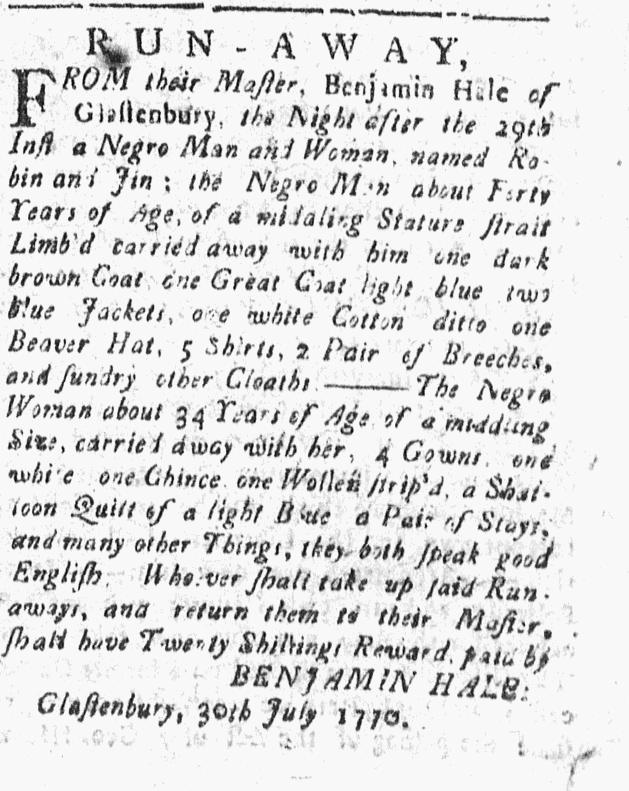 RUN-AWAY,
FROM their Maſter, Benjamin Hale of
Glaſtenbury, the Night after the 29th
Inſt a Negro Man and Woman, named Ro-
bin and Jin; the Negro Man about Forty
Years of Age, of a middaling Stature ſtrait
Limb'd carried away with him one dark
brown Coat one Great Coat light blue two
blue Jackets, one white Cotton ditto one
Beaver Hat, 5 Shirts, 2 Pair of Breeches,
and ſundry other Cloaths ——— The Negro
Woman about 34 Years of Age of a middling
Size, carried away with her, 4 Gowns, one
white one Chince one Wollen ſtrip'd, a Shal-
loon Quilt of a light Blue a Pair of Stays,
and many other Things, they both ſpeak good
Engliſh. Whoever ſhall take up ſaid Run-
aways, and return them to their Maſter,
ſhall have Twenty Shillings Reward, paid by
BENJAMIN HALE:
Glaſtenbury, 30th July 1770.